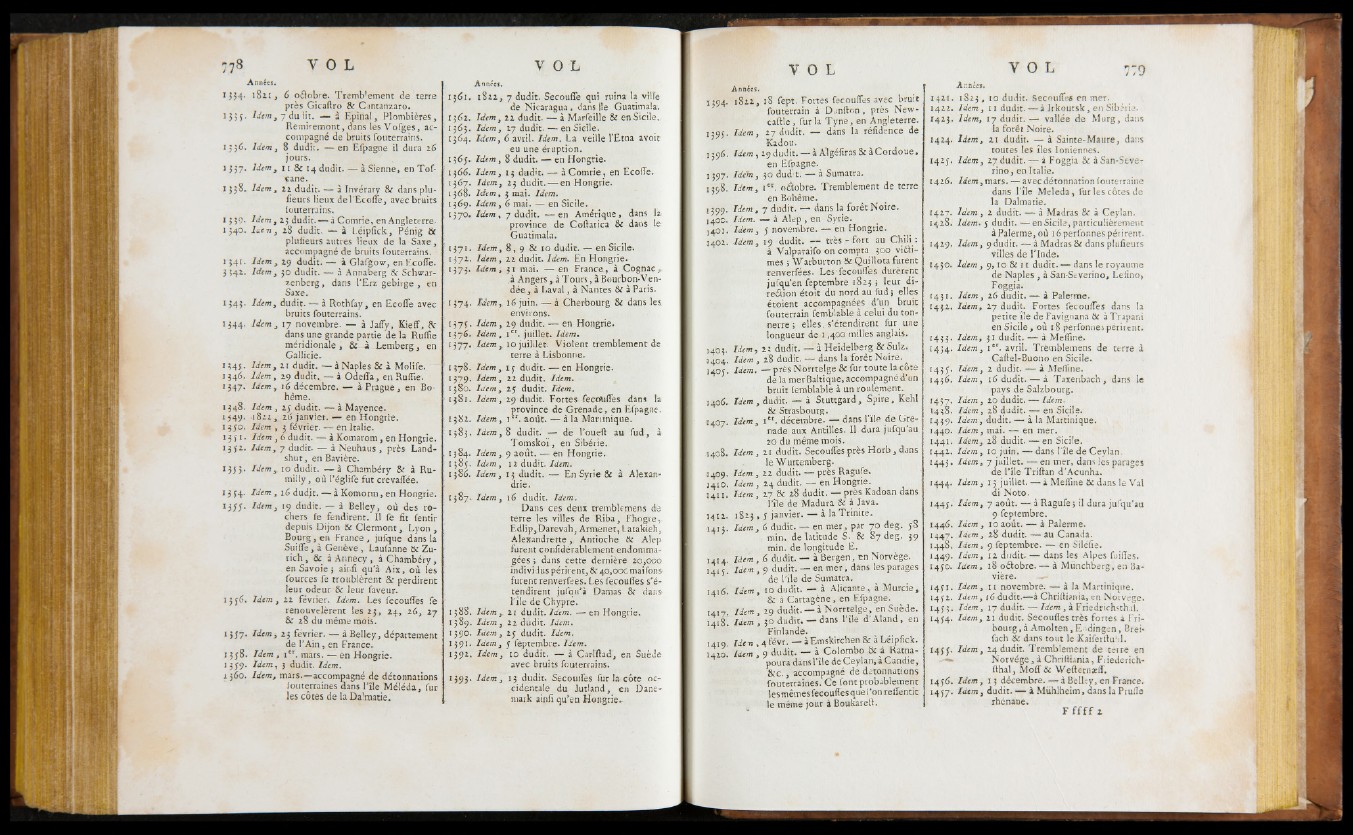 778 VOL
Années.
1334. 1821, 6 octobre. Tremblement de terre
près Gicaſtro & Cantanzaro.
1335. Idem, 7 dudit. — à Epinal, Plombières,
Remiremont, dans les Voſges, ac-
compagné de bruits ſouterrains.
1336. Idem, 8 dudit. — en Eſpagne il dura 26
jours.
1337. Idem, 11 & 14 dudit. — à Sienne, en Toſ-
cane.
1338. Idem, 22 dudit. — à Invérary & dans plu-
ſieurs lieux de l'Ecoſſe, avec bruits
ſouterrains.
1339. Idem, 23 dudit. — à Comrie, en Angleterre.
1340. Idem, 28 dudit. — à Léipſick, Pénig &
pluſieurs autres lieux de la Saxe,
accompagné de bruits ſouterrains.
1341. Idem, 29 dudit. — à Glaſgow, en Ecoſſe.
1342. Idem, 30 dudit. — à Annaberg & Schwar-
zenberg, dans l'Erz gebirge, en
Saxe.
1343. Idem, dudit. — à Rothſay, en Ecoſſe avec
bruits ſouterrains.
1344. Idem, 17 novembre. — à Jaſſy, Kieff, &
dans une grande partie de la Ruſſie
méridionale, & à Lemberg, en
Gallicie.
1345. Idem, 21 dudit. — à Naples & à Moliſe.
1346. Idem, 29 dudit. — à Odeſſa, en Ruſſie.
1347. Idem, 16 décembre. — à Prague, en Bo-
hême.
1348. Idem, 25 dudit. — à Mayence.
1349. 1822, 26 janvier. — en Hongrie.
1350. Idem, 3 février. — en Italie.
1351. Idem, 6 dudit. — à Komarom, en Hongrie.
1352. Idem, 7 dudit. — à Neuhaus, près Land-
shut, en Bavière.
1353. Idem, 10 dudit. — à Chambéry & à Ru-
milly, où l'égliſe fut crevaſſée.
1354. Idem, 16 dudit. — à Komorn, en Hongrie.
1355. Idem, 19 dudit. — à Belley, où des ro-
chers ſe fendirent. Il ſe fit ſentir
depuis Dijon & Clermont, Lyon,
Bourg, en France, juſque dans la
Suiſſe, à Genève, Lauſanne & Zu-
rich, & à Annecy, à Chambéry,
en Savoie; ainſi qu'à Aix, où les
ſources ſe troublèrent & perdirent
leur odeur & leur ſaveur.
1356. Idem, 22 février. Idem. Les ſecouſſes ſe
renouvelèrent les 23, 24, 26, 27
& 28 du même mois.
1357. Idem, 23 février. — à Belley, département
de l'Ain, en France.
1358. Idem, 1er. mars. — en Hongrie.
1359. Idem, 3 dudit. Idem.
1360. Idem, mars.—accompagné de détonnations
ſouterraines dans l'île Méléda, ſur
les côtes de la Dalmatie.
VOL
Années.
1361. 1822, 7 dudit. Secouſſe qui ruina la ville
de Nicaragua, dans île Guatimala.
1362. Idem, 22 dudit. — à Marſeille & en Sicile.
1363. Idem, 27 dudit. — en Sicile.
1364. Idem, 6 avril. Idem. La veille l'Etna avoit
eu une éruption.
1365. Idem, 8 dudit. — en Hongrie.
1366. Idem, 13 dudit. — à Comrie, en Ecoſſe.
1367. Idem, 23 dudit. — en Hongrie.
1368. Idem, 3 mai. Idem.
1369. Idem, 6 mai. — en Sicile.
1370. Idem, 7 dudit. — en Amérique, dans la
province de Coſtarica & dans le
Guatimala.
1371. Idem, 8, 9 & 10 dudit. — en Sicile.
1372. Idem, 22 dudit. Idem. En Hongrie.
1373. Idem, 31 mai. — en France, à Cognac,
à Angers, à Tours, à Bourbon-Ven-
dée, à Laval, à Nantes & à Paris.
1374. Idem, 16 juin. — à Cherbourg & dans les
environs.
1375. Idem, 29 dudit. — en Hongrie.
1376. Idem, 1er. juillet. Idem.
1377. Idem, 10 juillet. Violent tremblement de
terre à Lisbonne.
1378. Idem, 15 dudit. — en Hongrie.
1379. Idem, 22 dudit. Idem.
1380. Idem, 25 dudit. Idem.
1381. Idem, 29 dudit. Fortes ſecouſſes dans la
province de Grenade, en Eſpagne.
1382. Idem, 1er. août. — à la Martinique.
1383. Idem, 8 dudit. — de l'oueſt au ſud, à
Tomskoi, en Sibérie.
1384. Idem, 9 août. — en Hongrie.
1385. Idem, 12 dudit. Idem.
1386. Idem, 13 dudit. — En Syrie & à Alexan-
drie.
1387. Idem, 16 dudit. Idem.
Dans ces deux tremblemens de
terre les villes de Riba, Fhogre,
Edlip, Darevah, Armenet, Latakieh,
Alexandrette, Antioche & Alep
furent conſidérablement endomma-
gées; dans cette dernière 20,000
individus périrent, & 40,000 maiſons
furent renverſées. Les ſecouſſes s'é-
tendirent juſqu'à Damas & dans
l'île de Chypre.
1388. Idem, 21 dudit. Idem. — en Hongrie.
1389. Idem, 22 dudit. Idem.
1390. Idem, 25 dudit. Idem.
1391. Idem, 5 ſeptembre. Idem.
1392. Idem, 10 dudit. — à Carlſtad, en Suède
avec bruits ſouterrains.
1393. Idem, 13 dudit. Secouſſes ſur la côte oc-
cidentale du Jutland, en Dane-
mark ainſi qu'en Hongrie.
VOL
Années.
1394. 1822, 18 ſept. Fortes ſecouſſes avec bruit
ſouterrain à Dunſton, près New-
caſtle, ſur la Tyne, en Angleterre.
1395. Idem, 27 dudit. — dans la réſidence de
Kadou.
1396. Idem, 29 dudit. — à Algéſiras & à Cordoue,
en Eſpagne.
1397. Idem, 30 dudit. — à Sumatra.
1398. Idem, 1er. octobre. Tremblement de terre
en Bohême.
1399. Idem, 7 dudit. — dans la forêt Noire.
1400. Idem. — à Alep, en Syrie.
1401. Idem, 5 novembre. — en Hongrie.
1402. Idem, 19 dudit. — très-fort au Chili:
à Valparaiſo on compta 300 victi-
mes; Warburton & Quillota furent
renverſées. Les ſecouſſes durèrent
juſqu'en ſeptembre 1823; leur di-
rection étoit du nord au ſud; elles
étoient accompagnées d'un bruit
ſouterrain ſemblable à celui du ton-
nerre; elles s'étendirent ſur une
longueur de 1,400 milles anglais.
1403. Idem, 22 dudit. — à Heidelberg & Sulz.
1404. Idem, 28 dudit. — dans la forêt Noire.
1405. Idem. — près Norrtelge & ſur toute la côte
de la mer Baltique, accompagné d'un
bruit ſemblable à un roulement.
1406. Idem, dudit. — à Stuttgard, Spire, Kehl
& Strasbourg.
1407. Idem, 1er. décembre. — dans l'île de Gre-
nade aux Antilles. Il dura juſqu'au
20 du même mois.
1408. Idem, 21 dudit. Secouſſes près Horb, dans
le Wurtemberg.
1409. Idem, 22 dudit. — près Raguſe.
1410. Idem, 24 dudit. — en Hongrie.
1411. Idem, 27 & 28 dudit. — près Kadoan dans
l'île de Madura & à Java.
1412. 1823, 5 janvier. — à la Trinité.
1413. Idem, 6 dudit. — en mer, par 70 deg. 58
min. de latitude S. & 87 deg. 39
min. de longitude E.
1414. Idem, 6 dudit. — à Bergen, en Norvège.
1415. Idem, 9 dudit. — en mer, dans les parages
de l'île de Sumatra.
1416. Idem, 10 dudit. — à Alicante, à Murcie,
& à Cartagène, en Eſpagne.
1417. Idem, 29 dudit. — à Norrtelge, en Suède.
1418. Idem, 30 dudit. — dans l'île d'Aland, en
Finlande.
1419. Idem, 4 févr. — à Emskirchen & à Léipſick.
1420. Idem, 9 dudit. — à Colombo & à Ratna-
poura dans l'île de Ceylan, à Candie,
&c., accompagné de détonnations
ſouterraines. Ce ſont probablement
les mêmes ſecouſſes que l'on reſſentit
le même jour à Boukareſt.
VOL 779
Années.
1421. 1823, 10 dudit. Secouſſes en mer.
1422. Idem, 11 dudit. — à Irkoutsk, en Sibérie.
1423. Idem, 17 dudit. — vallée de Murg, dans
la forêt Noire.
1424. Idem, 21 dudit. — à Sainte-Maure, dans
toutes les îles Ioniennes.
1425. Idem, 27 dudit. — à Foggia & à San-Seve-
rino, en Italie.
1426. Idem, mars. — avec détonnation ſouterraine
dans l'île Meleda, ſur les côtes de
la Dalmatie.
1427. Idem, 2 dudit. — à Madras & à Ceylan.
1428. Idem. 5 dudit. — en Sicile, particulièrement
à Palerme, où 16 perſonnes périrent.
1429. Idem, 9 dudit. — à Madras & dans pluſieurs
villes de l'Inde.
1430. Idem, 9, 10 & 11 dudit. — dans le royaume
de Naples, à San-Severino, Leſino,
Foggia.
1431. Idem, 26 dudit. — à Palerme.
1432. Idem, 27 dudit. Fortes ſecouſſes dans la
petite île de Favignana & à Trapani
en Sicile, où 18 perſonnes périrent.
1433. Idem, 31 dudit. — à Meſſine.
1434. Idem, 1er. avril. Tremblemens de terre à
Caſtel-Buono en Sicile.
1435. Idem, 2 dudit. — à Meſſine.
1436. Idem, 16 dudit. — à Taxenbach, dans le
pays de Salzbourg.
1437. Idem, 20 dudit. — Idem.
1438. Idem, 28 dudit. — en Sicile.
1439. Idem, dudit. — à la Martinique.
1440. Idem, mai. — en mer.
1441. Idem, 28 dudit. — en Sicile.
1442. Idem, 10 juin. — dans l'île de Ceylan.
1443. Idem, 7 juillet. — en mer, dans les parages
de l'île Triſtan d'Acunha.
1444. Idem, 13 juillet. — à Meſſine & dans le Val
di Noto.
1445. Idem, 7 août. — à Raguſe; il dura juſqu'au
9 ſeptembre.
1446. Idem, 10 août. — à Palerme.
1447. Idem, 28 dudit. — au Canada.
1448. Idem, 9 ſeptembre. — en Siléſie.
1449. Idem, 12 dudit. — dans les Alpes ſuiſſes.
1450. Idem, 18 octobre. — à Munchberg, en Ba-
vière.
1451. Idem, 11 novembre. — à la Martinique.
1452. Idem, 16 dudit. — à Chriſtiania, en Norvège.
1453. Idem, 17 dudit. — Idem, à Friedrichsthal.
1454. Idem, 21 dudit. Secouſſes très fortes à Fri-
bourg, à Amolten, Endingen, Brei-
ſach & dans tout le Kaiſerſtuhl.
1455. Idem, 24 dudit. Tremblement de terre en
Norvège, à Chriſtiania, Friederich-
ſthal, Moſſ & Weſternœſſ.
1456. Idem, 13 décembre. — à Belley, en France.
1457. Idem, dudit. — à Mühlheim, dans la Pruſſe
rhénane.
F ffff 2